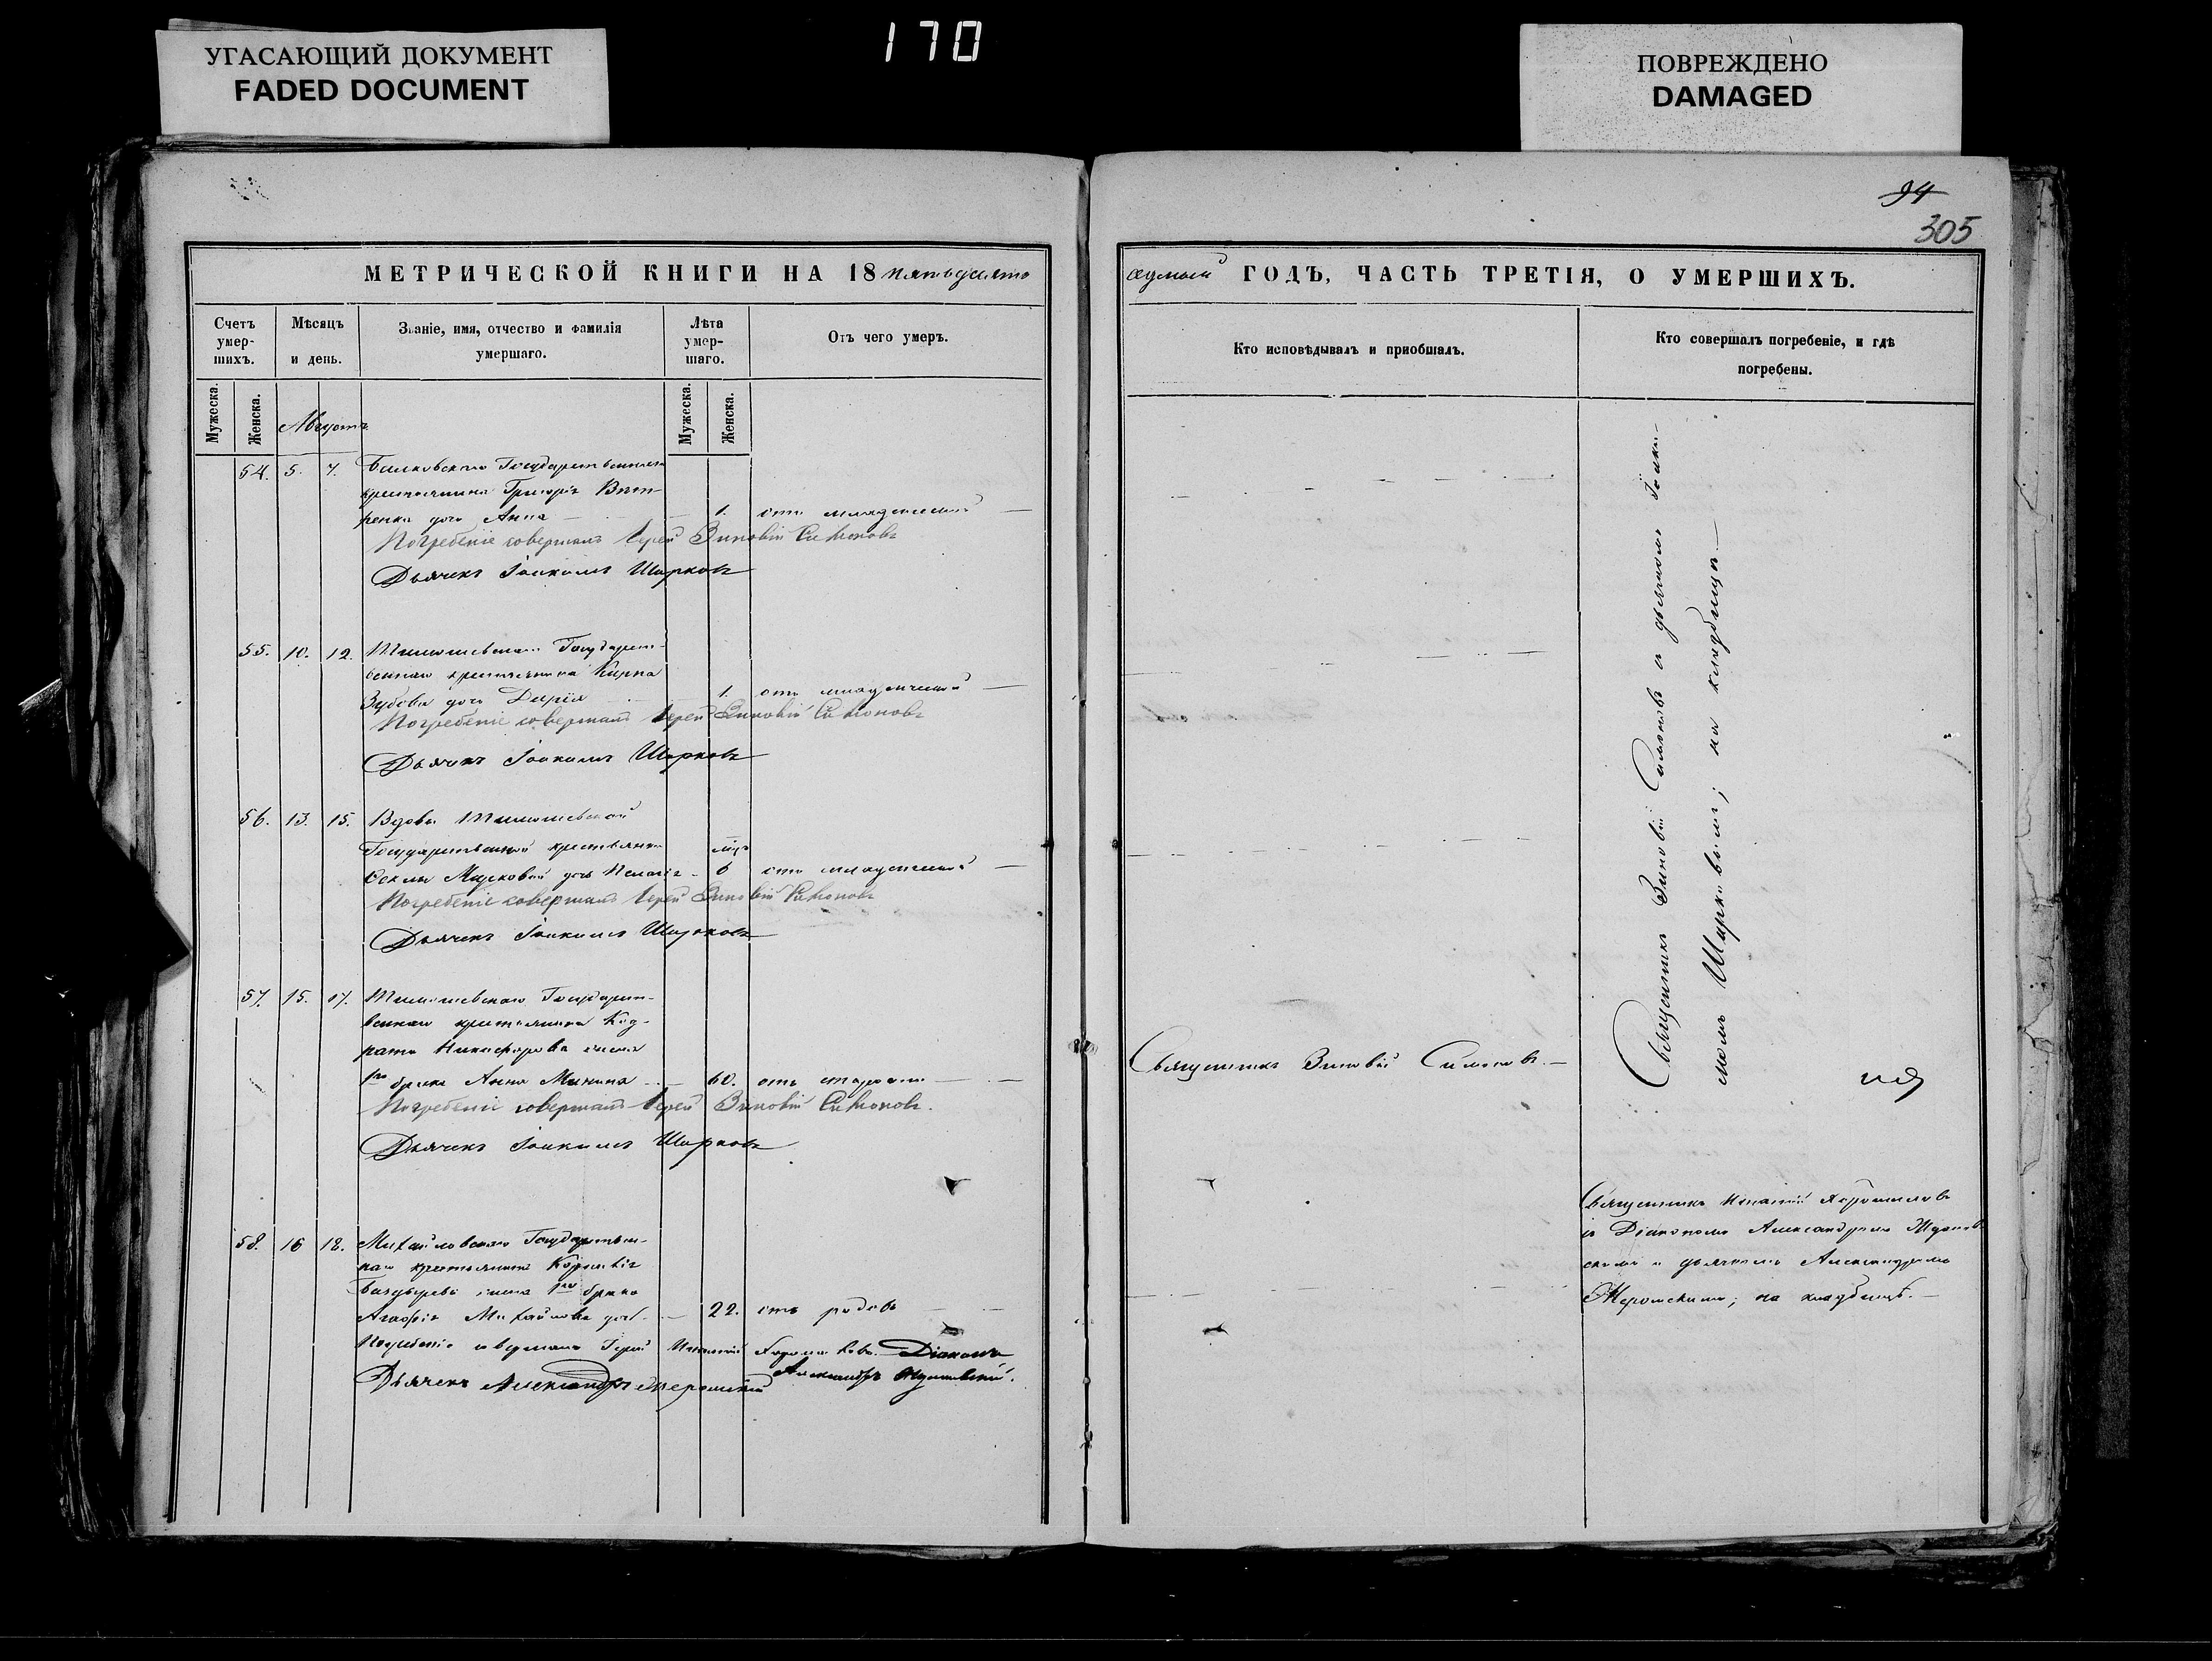 УГАСАЮЩИЙ ДОКУМЕНТ
FADED DOCUMENT
170
ПОВРЕЖДЕНО
DAMAGED
94
305
МЕТРИЧЕСКОЙ КНИГИ НА 18 пятьдесятъ
седмый ГОДЪ, ЧАСТЬ ТРЕТІЯ, О УМЕРШИХЪ.
Счетъ умер-шихъ.
Мѣсяцъ и день.
Званіе, имя, отчество и фамилія умершаго.
Лѣта умер-шаго.
Отъ чего умеръ.
Кто исповѣдывалъ и приобщалъ.
Кто совершалъ погребеніе, и гдѣ погребены.
Мужеска.
Женска.
Мужеска.
Женска.
Августъ
54. 5. 7. Государственнаго
крестьянина Григорія Вет-
ренка дочь Анна 1. отъ младенческой
Погребеніе совершалъ Іерей Зиновій Симоновъ
Дьячекъ Іоакимъ Шарковъ
55. 10. 12. Государст-
веннаго крестьянина Карпа
Зубова дочь Дарія 1. отъ младенческой
Погребеніе совершалъ Іерей Зиновій Симоновъ
Дьячекъ Іоакимъ Шарковъ
56. 13. 15. Вдовы
Государственной крестьянки
Ѳеклы Марковой дочь Пелагія 6 отъ младенческой
Погребеніе совершалъ Іерей Зиновій Симоновъ
Дьячекъ Іоакимъ Шарковъ
57. 15. 17. Государст-
веннаго крестьянина Код-
рата Никифорова жена
1го брака Анна Минина 60. отъ старости
Погребеніе совершалъ Іерей Зиновій Симоновъ.
Дьячекъ Іоакимъ Шарковъ
58. 16 18. Михайловскаго Государствен-
наго крестьянина
жена 1го брака
Агафія Михайлова 22. отъ родовъ
Погребеніе совершалъ Іерей Діаконъ
Александръ
Дьячекъ Александръ
Священникъ Зиновій Симоновъ.
Священникъ Зиновій Симоновъ съ дьячкомъ Іоаки-
момъ Шарковымъ; на кладбищѣ.
Священникъ
съ Діакономъ Александромъ
и дьячкомъ Александромъ
на кладбищѣ.